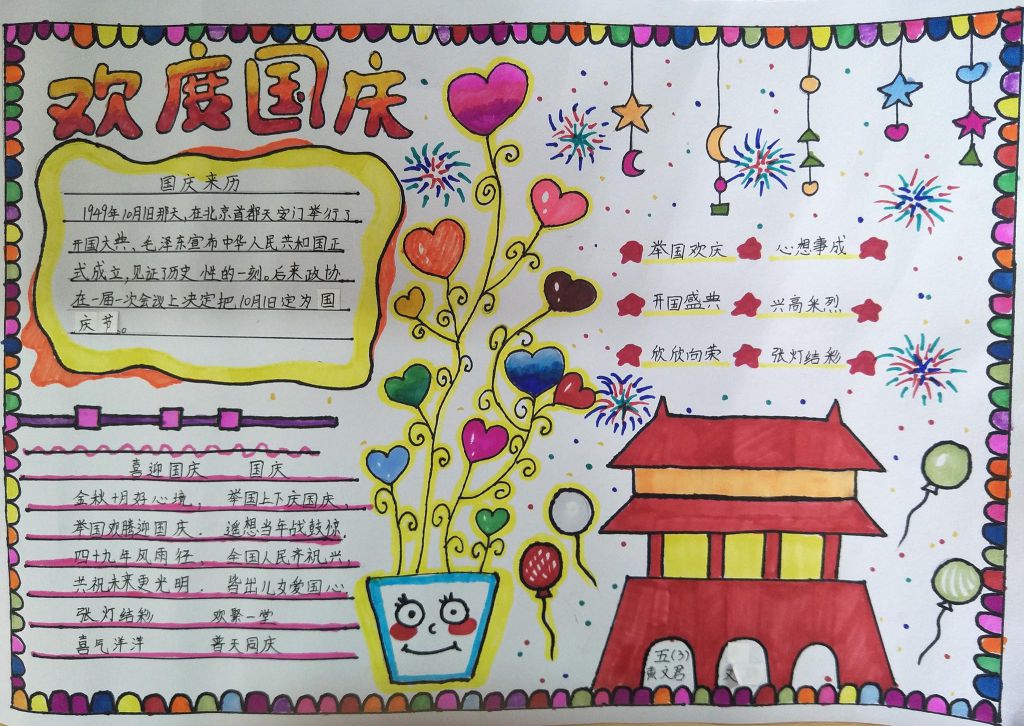 欢度国庆
国庆来历
1949年10月1日那天,在北京首都天安门举行了
开国大典、毛泽东宣布中华人民共和国正
式成立,见证了历史性的一刻。后来政协
在一届一次会议上决定把10月1日定为国
庆节。
举国欢庆 心想事成
开国盛典 兴高采烈
欣欣向荣 张灯结彩
喜迎国庆 国庆
金秋十月好心境, 举国上下庆国庆,
举国欢腾迎国庆. 遥想当年战鼓惊.
四十九年风雨径, 全国人民齐祝兴,
共祝未来更光明. 皆出儿女爱国心.
张灯结彩 欢聚一堂
喜气洋洋 普天同庆
五(3)
文君